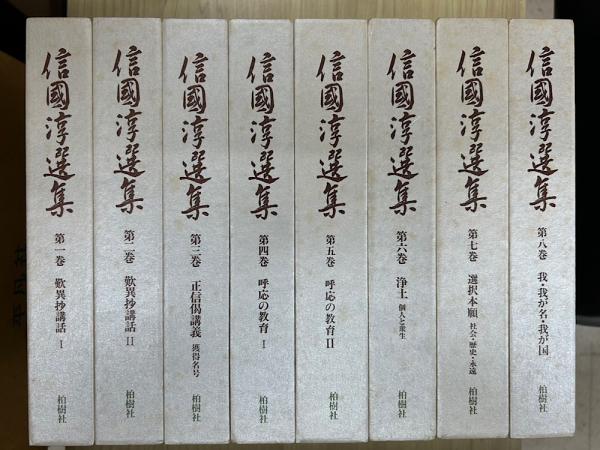 信國淳選集
第一巻 歎異抄講話 I
柏樹社
信國淳選集
第二巻 歎異抄講話 II
柏樹社
信國淳選集
第三巻 正信偈講義 獲得名号
柏樹社
信國淳選集
第四巻 呼応の教育 I
柏樹社
信國淳選集
第五巻 呼応の教育 II
柏樹社
信國淳選集
第六巻 浄土 個人と衆生
柏樹社
信國淳選集
第七巻 選択本願 社会・歴史・永遠
柏樹社
信國淳選集
第八巻 我・我が名・我が国
柏樹社